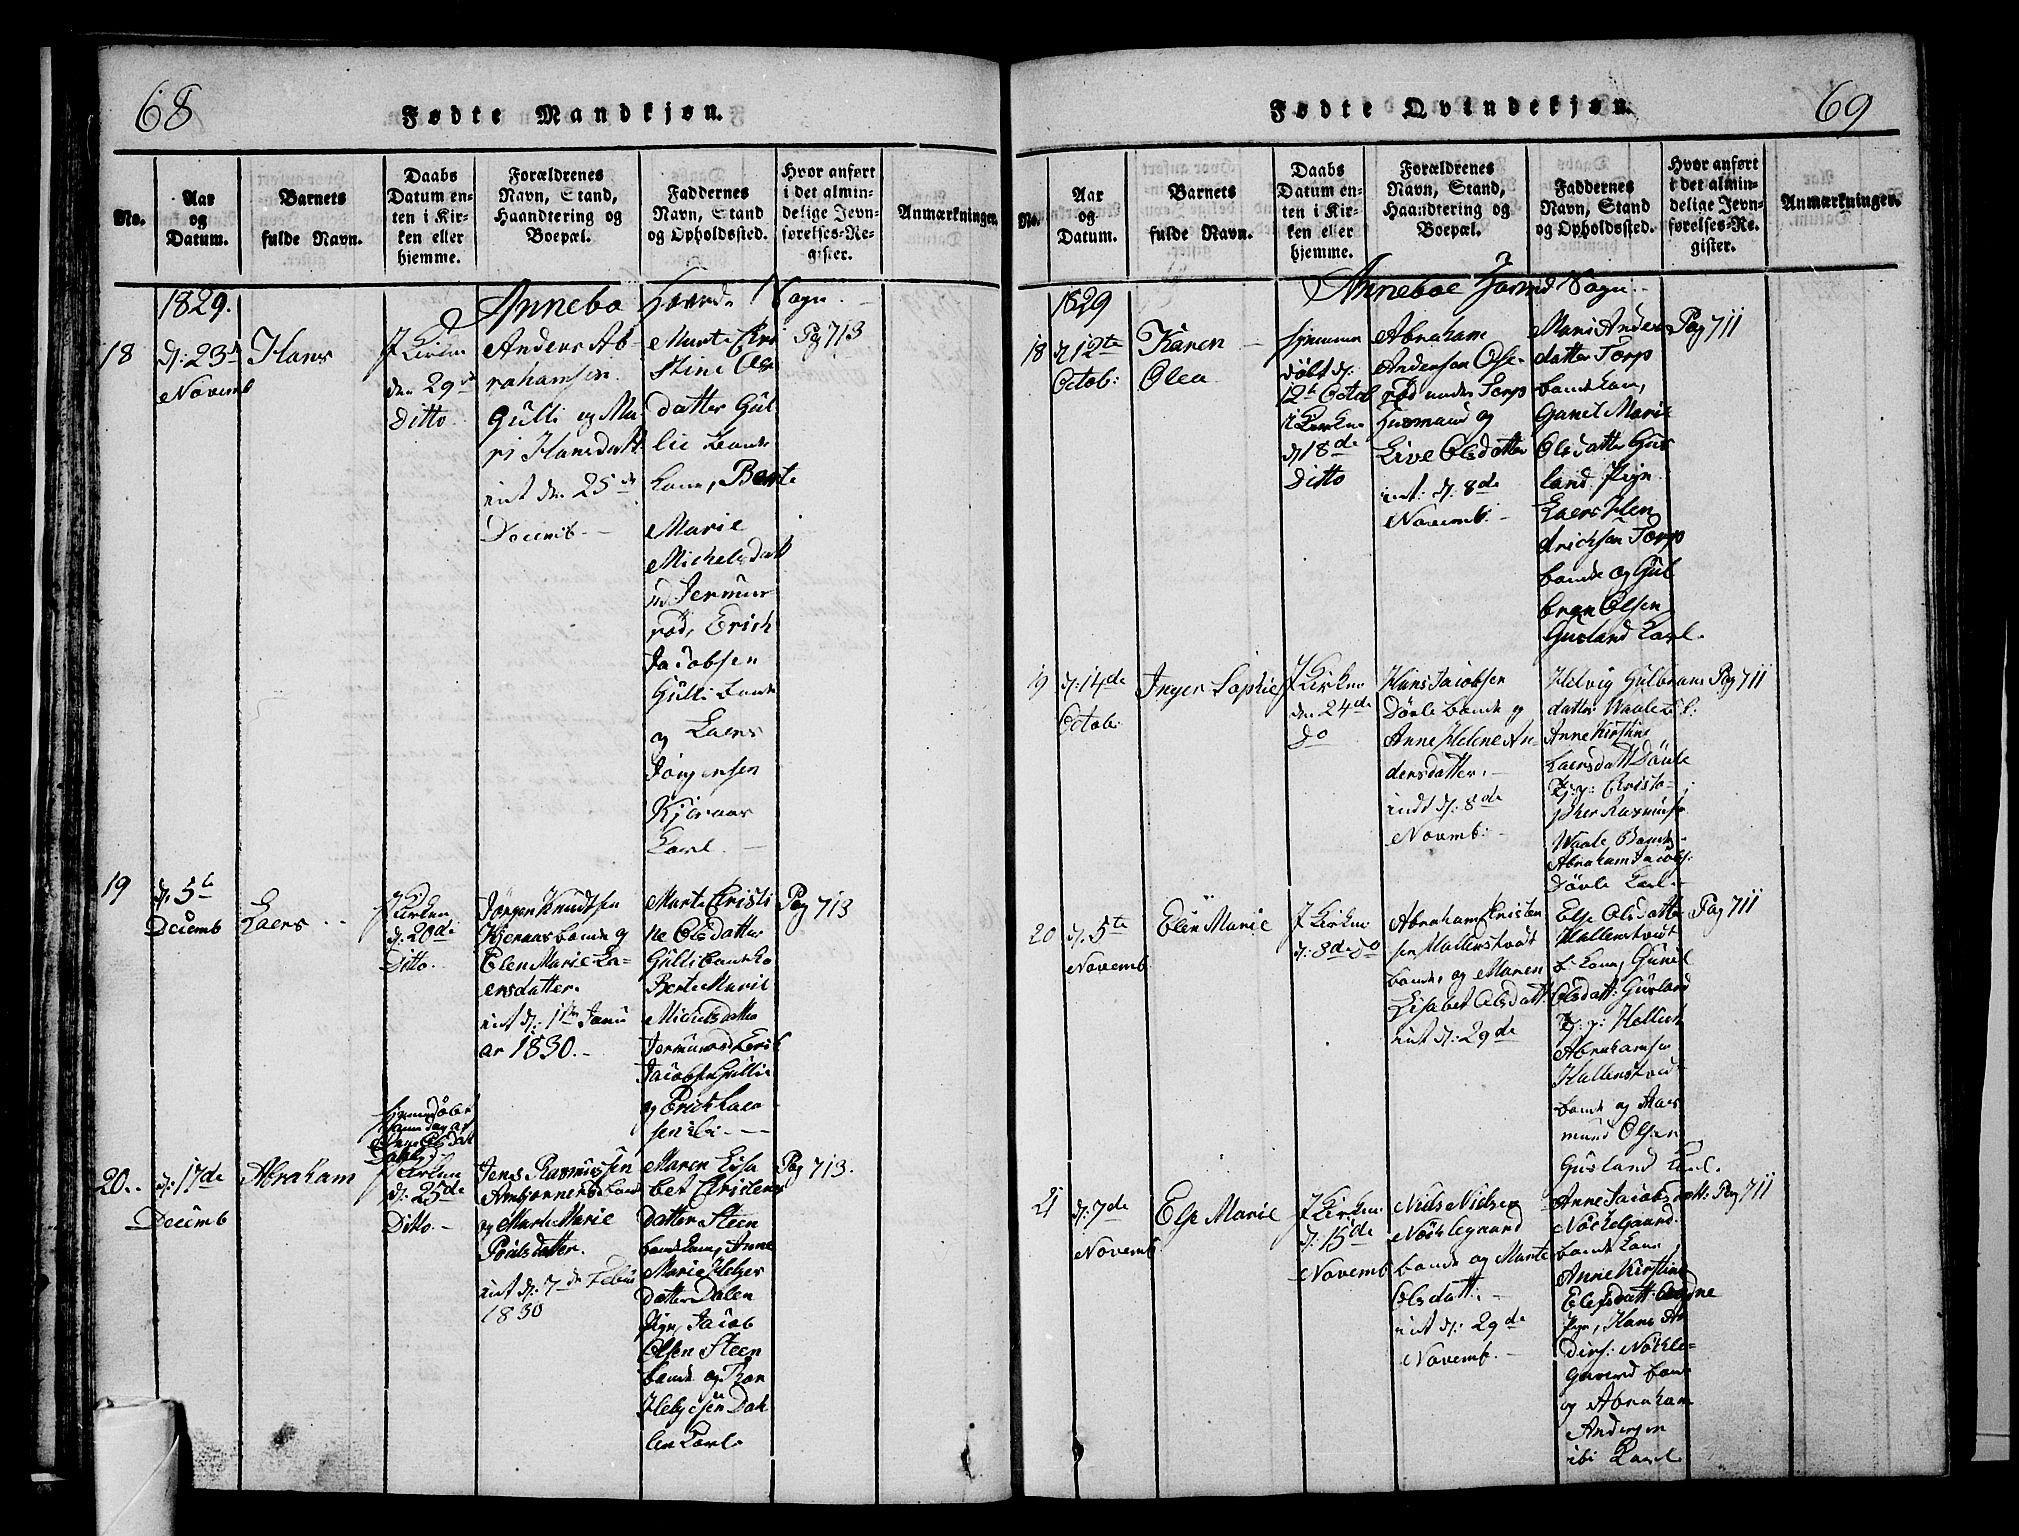 68
Fødte Mandkjøn.
No.
Aar
og
Datum.
Barnets
fulde Navn.
Daabs
Datum en-
ten i Kir-
ken eller
hjemme.
Forældrenes
Navn, Stand,
Haandtering og
Boepæl.
Faddernes
Navn, Stand
og Opholdssted.
Hvor anført
i det almin-
delige Jevn-
førelses-Re-
gister.
Anmærkninger.
1829.
Annebo Sogn
18
d: 23d
Novemb
Hans
I Kirken
den 29de
Ditto
Anders Ab-
rahamsen
Gulli og Ma-
ri Hansdatt
int den 25de
Decemb.
Marte Chri
stine Ols
datter Gul
lie bonde
kone, Berte
Marie
Michelsdatt
rød, Erich
Jacobsen
Gulli bonde
og Laers
Jørgensen
Kjeraas
Karl.
Pag 713
19
d: 5te
Decemb
Laers
I Kirken
d: 20de
Ditto.
Jørgen Knudtsen
Kjeraas bonde og
Elen Marie La-
ersdatter.
int d: 1te Janu
ar 1830.
Marte Christi
ne Olsdatter
Gulli bonde ko
Berte Marie
Michelsdatter
Jacobsen Gullie
og Erich Laer
sen ibi
Pag 713
20.
d: 17de
Decemb
Abraham
I Kirken
d: 25de
Ditto.
Jens Rasmussen
og Marte Marie
Poulsdatter.
int d: 7de Febru
1830
Maren Lisa
bet Christens
datter Steen
bondekone, Anne
Marie Helges
datter Dalen
Pige, Jacob
Olsen Steen
bonde og Thor
Helgesen Dah
len Karl.
Pag 713.
69
Fødte Qvindekjøn.
No.
Aar
og
Datum.
Barnets
fulde Navn.
Daabs
Datum en-
ten i Kir-
ken eller
hjemme.
Forældrenes
Navn, Stand,
Haandtering og
Boepæl.
Faddernes
Navn, Stand
og Opholdssted.
Hvor anført
i det almin-
delige Jevn-
førelses-Re-
gister.
Anmærkninger.
1829
Anneboe Sogn
18
d 12te
Octob:
Karen
Olea
Hjemme
døbt d:
12te Octob
i Kirken
d 18de
Ditto
Abraham
Andersen Olse-
rød under Torp
Huusmand og
Live Olsdatter
int: d: 8de
Novemb:
Mari Anders
datter Torp
bondekone,
Gunil Marie
Olsdatter Gus
land Pige
Laers Hen
drichsen Torp
bonde og Gul
bran Olsen
Gusland Karl.
Pag 711
19
d: 14de
Octob:
Inger Sophie
I Kirken
den 24de
do
Hans Jacobsen
Døvle bonde og
Anne Helene An-
dersdatter.
indt d: 8de
Novemb:
Helvig Gulbrans
datter Waale
Anne Kirstine
Laersdatt Døvle
Pige: Christo-
pher Rasmuss
Waale Bonde
Abraham Jacobs:
Døvle Karl
Pag 711
20
d: 5te
Novemb
Elen Marie
I Kirken
d: 8de do
Abraham Christen
sen Hallenstvedt
bonde og Maren
Lisabet Olsdatt:
int d: 29de
Else Olsdatter
Hallenstvedt
b: kone, Gunil
Olsdatt: Gusland
Abrahamsen
Hallenstvedt
bonde og Aas
mund Olsen
Gusland Karl.
Pag 711
21
d: 7de
Novemb
Else Marie
I Kirken
d: 15de
Novemb
Niels Nielsen
Nøklegaard
bonde og Marte
Olsdatt:
int d: 29de
Novemb.
Anne Jacobsdatt:
Nøklegaard
bonde kone,
Anne Kirstine
Pige, Hans An
ders: Nøkle-
gaard bonde
og Abraham
Andersen
ibi Karl
Pag 711